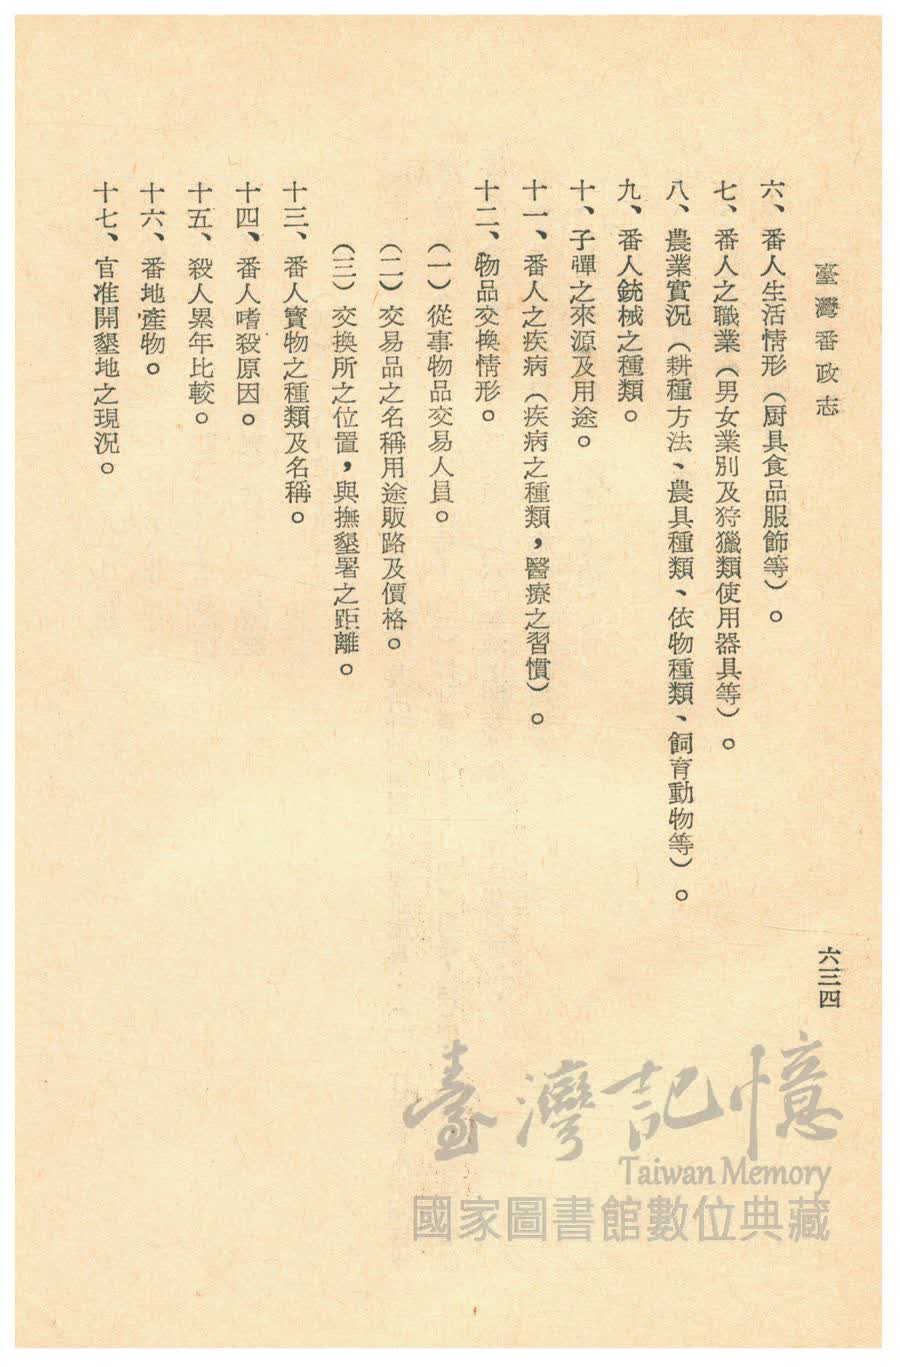 臺灣番政志
六三四
六、番人生活情形（厨具食品服飾等）。
七、番人之職業（男女業別及狩獵類使用器具等）。
八、農業實況（耕種方法、農具種類、依物種類、飼育動物等）。
九、番人銃械之種類。
十、子彈之來源及用途。
十一、番人之疾病（疾病之種類，醫療之習慣）。
十二、物品交換情形。
（一）從事物品交易人員。
（二）交易品之名稱用途販路及價格。
（三）交換所之位置，與撫墾署之距離。
十三、番人寶物之種類及名稱。
十四、番人嗜殺原因。
十五、殺人累年比較。
十六、番地產物。
十七、官准開墾地之現況。
臺灣記憶
Taiwan Memory
國家圖書館數位典藏